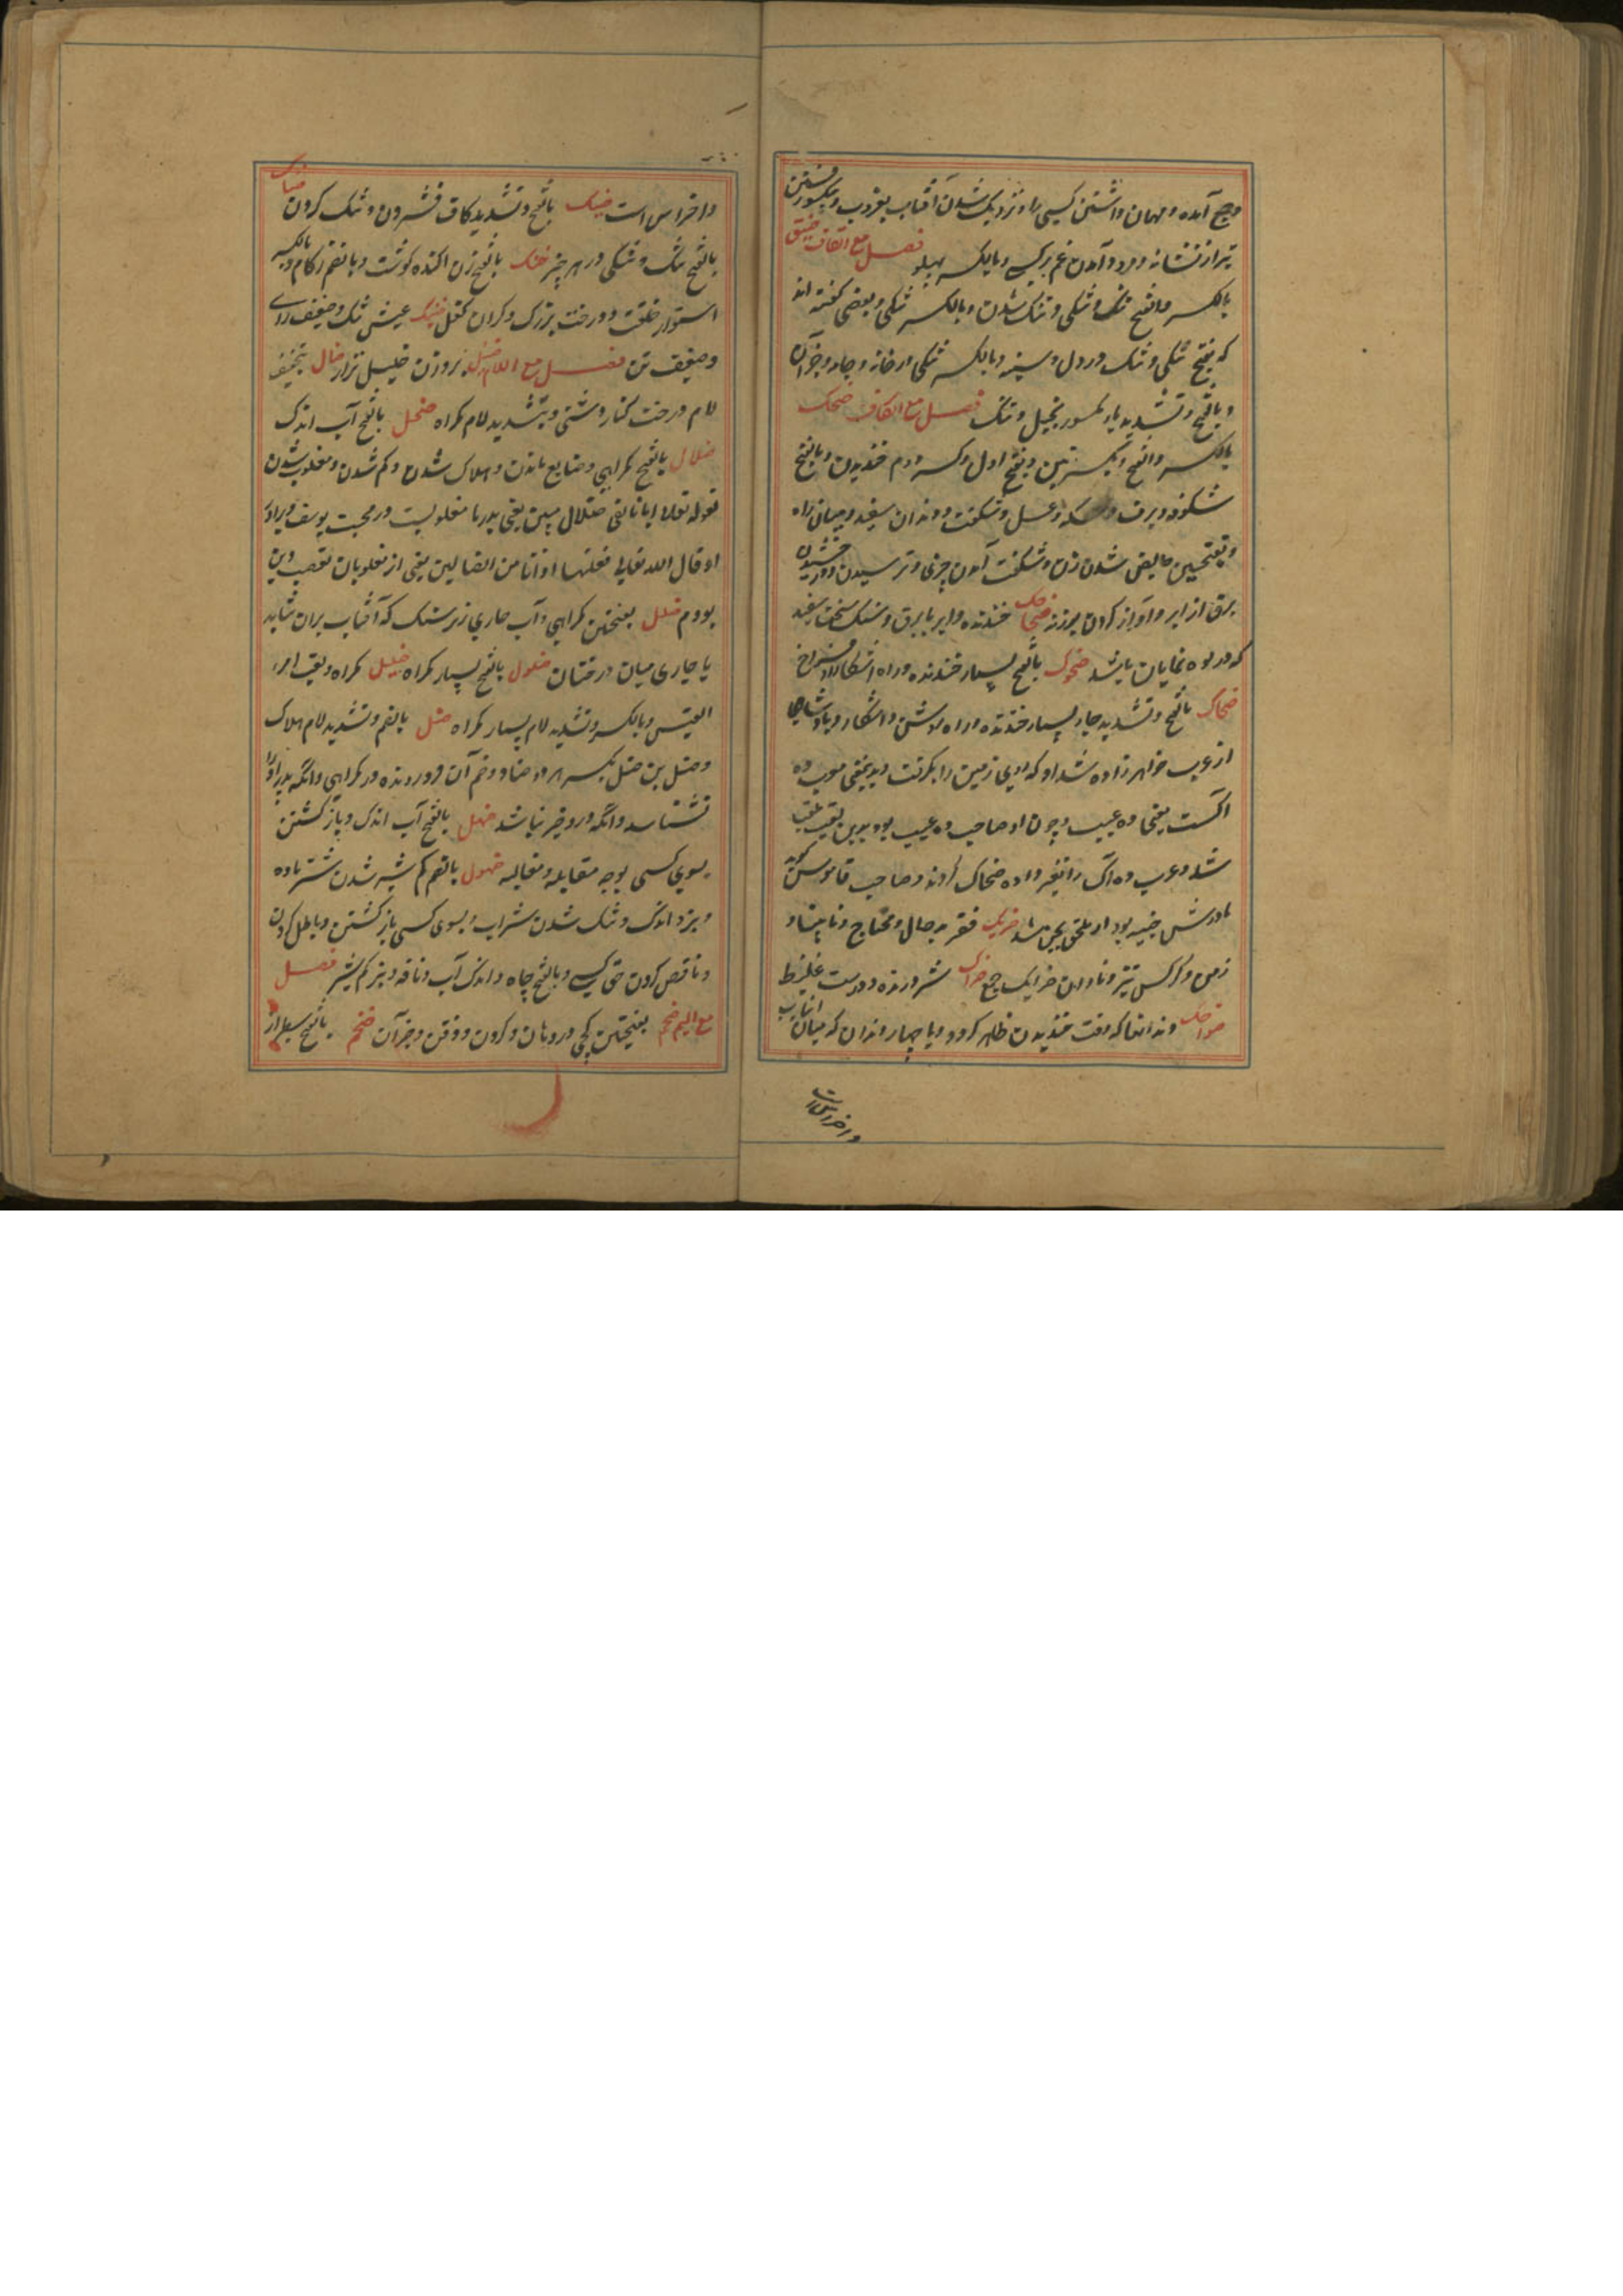 و جمع آمده و مهمان داشتن کسی را و نزدیک شدن آفتاب بغروب و یکسو رفتن
تیر از نشانه و فرود آمدن غم بر کسی و بالکسر پهلو فصل مع القاف ضیق
بالکسر و الفتح تنگ و تنگی و تنگ شدن و بالکسر تنگی و بعضی گفته اند
که بفتح تنگی و شک در دل و سینه و بالکسر تنگی در خانه و جامه و جز آن
و بالفتح و تشدید یاء مکسور بخیل و تنگ فصل مع الکاف ضحک
بالکسر و الفتح و بکسرتین و بفتح اول و کسر دوم خندیدن و بالفتح
شکوفه و برف و مسکه و عسل و شگفت و دندان سفید و میانه راه
و بفتحتین حایض شدن زن و شگفت آمدن چیزی و ترسیدن و درخشیدن
برق از ابر و آواز کردن بوزنه ضاحک خندنده و ابر با برق و سنگ سخت سفید
که در کوه نمایان باشد ضحوک بالفتح بسیار خندنده و راه آشکارا و فراخ
ضحاک بالفتح و تشدید حاء بسیار خندنده و راه روشن و آشکار و پادشاهی
از عرب خواهرزاده شداد که روی زمین را بگرفت و به معنی معرب ده
آکست یعنی ده عیب و چون او صاحب ده عیب بود بدین لقب ملقب
شد و عرب ده آک را تغیر داده ضحاک کردند و صاحب قاموس گوید
مادرش جنیه بود او ملحق بجن شد ضریک فقیر بدحال و محتاج و نابینا و
زمن و کرکس نر و نادان ضرایک جمع ضراک شیر درنده و درست غلیظ
ضواحک دندانها که وقت خندیدن ظاهر گردد و یا چهار دندان که میان انیاب
و اضراس است
و اضراس است ضنک بالفتح و تشدید کاف فشردن و تنگ کردن ضناک
بالفتح تنگ و تنگی در هر چیز ضنک بالفتح زن آگنده گوشت و بالضم زکام و بالکسر
استوار خلقت و درخت بزرگ و گران کفل ضنیک عیش تنگ و ضعیف رای
و ضعیف تن فصل مع اللام ضئیل بر وزن خلیل نزار ضال بتخفیف
لام درخت کنار دشتی و بتشدید لام گمراه ضحل بالفتح آب اندک
ضلال بالفتح گمراهی و ضایع ماندن و هلاک شدن و گم شدن و مغلوب شدن
قوله تعالی ان ابانا لفی ضلال مبین یعنی پدر ما مغلوبست در محبت یوسف و برادر
او قال الله تعالی فعلتها اذا و انا من الضالین یعنی از مغلوبان تعصب دین
بودم ضلل بفتحتین گمراهی و آب جاری زیر سنگ که آفتاب بران نتابد
یا جاری میان درختان ضلول بالفتح بسیار گمراه ضلیل گمراه و لقب امرء
القیس و بالکسر و تشدید لام بسیار گمراه ضل بالضم و تشدید لام هلاک
و ضل بن ضل بکسر هر دو ضاد و ضم آن فرورونده در گمراهی و آنکه پدر او را
نشناسد و آنکه درو خیر نباشد ضهل بالفتح آب اندک و بازگشتن
بسوی کسی بوجه مقابله و مغالبه ضهول بالضم کم شیر شدن شتر ماده
و بز و اندک و تنک شدن شراب و بسوی کسی بازگشتن و باطل کردن
و ناقص کردن حق کسی و بالفتح چاه و اندک آب و ناقه و بز کم شیر فصل
مع المیم ضجم بفتحتین کجی در دهان و گردن و ذقن و جز آن ضخم بالفتح سطبر از